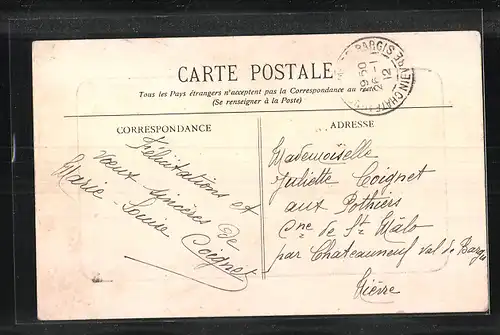 CARTE POSTALE
Tous les Pays étrangers n'acceptent pas la Correspondance au recto
(Se renseigner à la Poste)
CORRESPONDANCE
Félicitations et
vœux sincères de
Marie-Louise Coignet
ADRESSE
Mademoiselle
Juliette Coignet
aux Pothiers
Cne de St Malo
par Chateauneuf val de Bargis
Nièvre
BARGIS
9 50
26 - 1
12
NIEVRE